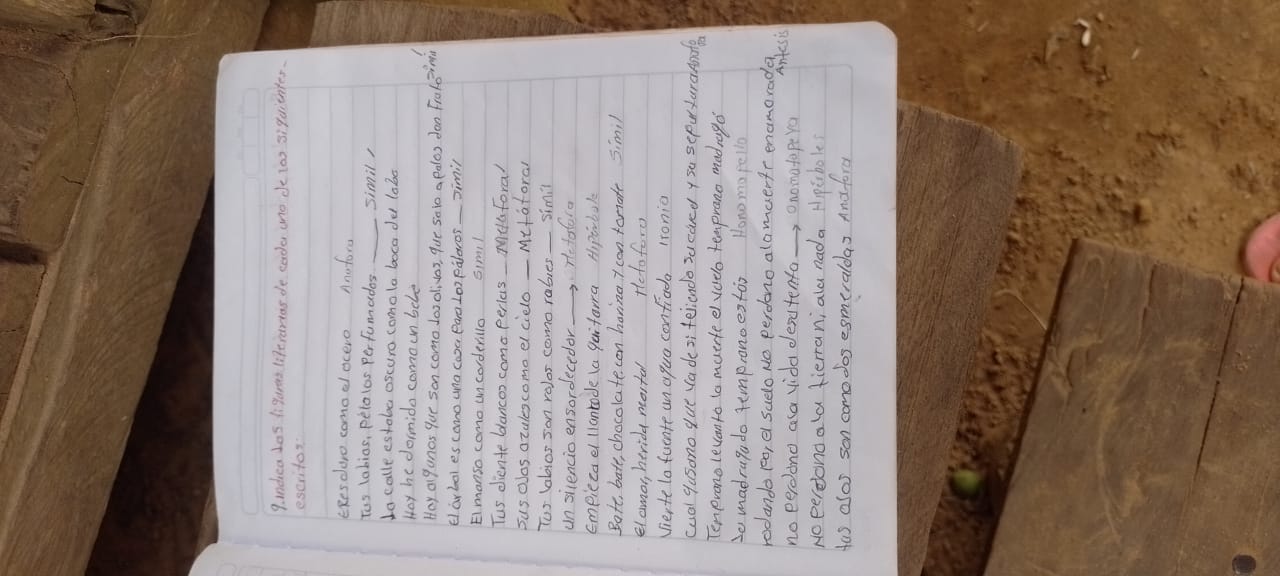 9. Indica las figuras literarias de cada uno de los siguientes
escritos:
Eres duro como el acero Anáfora
Tus labios, pétalos perfumados — Simil
La calle estaba oscura como la boca del lobo
Hoy he dormido como un bebé
Hay algunos que son como los olivos, que solo a palos dan fruto Simil
El árbol es como una casa para los pájaros — Simil
Es manso como un corderillo Simil
Tus diente blancos como perlas — Metáfora
Sus ojos azules como el cielo — Metáfora
Tus labios son rojos como rubíes — Simil
Un silencio ensordecedor → Metafora
Empieza el llanto de la guitarra Hipérbole
Bate, bate, chocolate con harina y con tomate Simil
El amor, herida mortal Metáfora
Vierte la fuente un agua confiada Ironia
Cual gusano que va de si tejiendo su cárcel y su sepultura Anáfora
Temprano levanto la muerte el vuelo temprano madrugó
la madrugada temprano estás
rodando por el suelo No perdono a la muerte enamorada
no perdono a la vida desatenta → Onomatopeya
No perdono a la tierra ni a la nada Hipérboles
tus ojos son como dos esmeraldas Anáfora